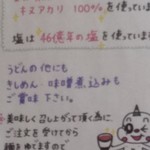 キヌアカリ 100%を使っています
塩は46億年の塩を使っていま
うどんの他にも
きしめん 味噌煮込みも
ご賞味下さい。
美味しく召し上がって頂く為に、
ご注文を受けてから
麺をゆでますので